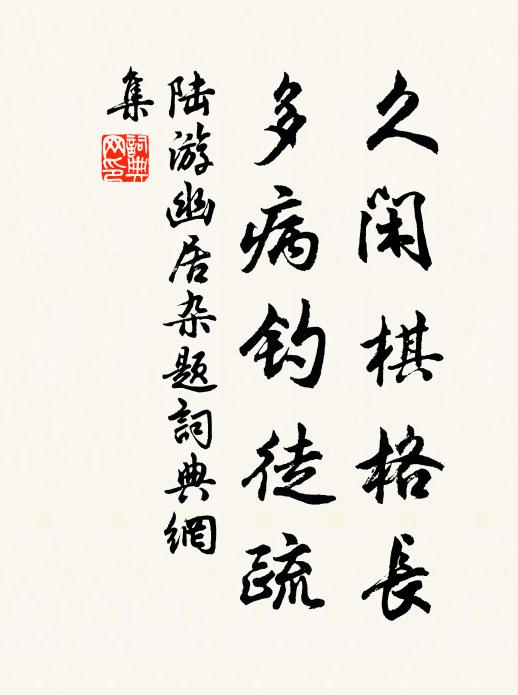 久閑棋格長
多病钓徒疏
陆游幽居杂题詞典網
集
詞典
网印